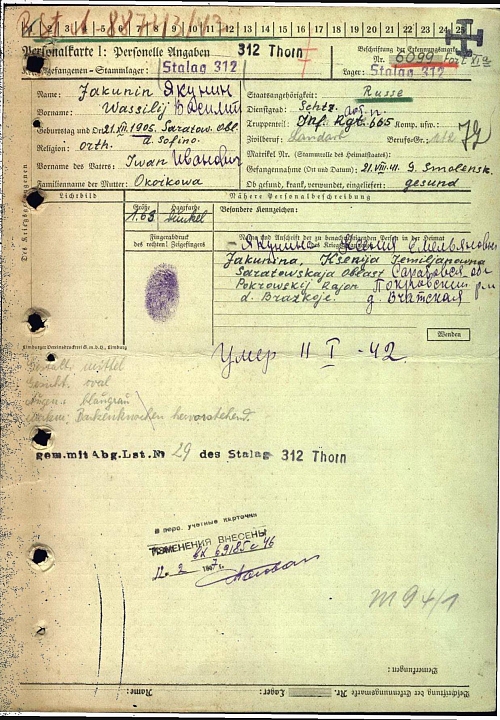 1 2 3 4 5 6 7 8 9 10 11 12 13 14 15 16 17 18 19 20 21 22 23 24 25
Personalkarte I: Personelle Angaben 312 Thorn
Kriegsgefangenen-Stammlager: Stalag 312
Beschriftung der Erkennungsmarke
Nr. 6099
Lager: Stalag 312
Des Kriegsgefangenen
Name: Jakunin Якунин
Vorname: Wassilij Василий
Geburtstag und -Ort: 21. 1905. Saratow. Obl.
Sofino.
Religion: orth.
Vorname des Vaters: Iwan Иванович
Familienname der Mutter: Okoikowa
Staatsangehörigkeit: Russe
Dienstgrad: Schtz.
Truppenteil: Inf. Rgt. 665 Komp. usw.:
Zivilberuf: Berufs-Gr.:
Matrikel Nr. (Stammrolle des Heimatstaates):
Gefangennahme (Ort und Datum): 21.VIII.41. Smolensk.
Ob gesund, krank, verwundet, eingeliefert: gesund
Lichtbild
Nähere Personalbeschreibung
Größe Haarfarbe
1.65 dunkel
Besondere Kennzeichen:
Fingerabdruck
des rechten! Zeigefingers
Name und Anschrift der zu benachrichtigenden Person in der Heimat
des Kriegsgefangenen
Якунина Ксения Емельяновна
Jakunina, Ksenija Jemiljanowna
Saratowskaja Oblast
Pokrowskij Rajon Покровский р-н
d. Brazkoje. д. Вчатская
Wenden
Умер 11 I - 42.
Gestalt: mittel
Gesicht: oval
Augen: blaugrau
Backenknochen hervorstehend.
gem. mit Abg. Lst. № 29 des Stalag 312 Thorn
В перс. учетные карточки
ИЗМЕНЕНИЯ ВНЕСЕНЫ
M 94/1
Bemerkungen:
Beschriftung der Erkennungsmarke Nr. Lager: Name: